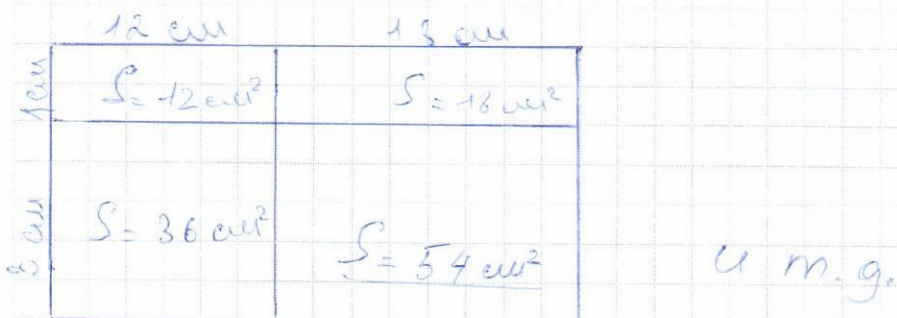 12 см 18 см
1 см S = 12 см² S = 18 см²
3 см S = 36 см² S = 54 см² и т.д.